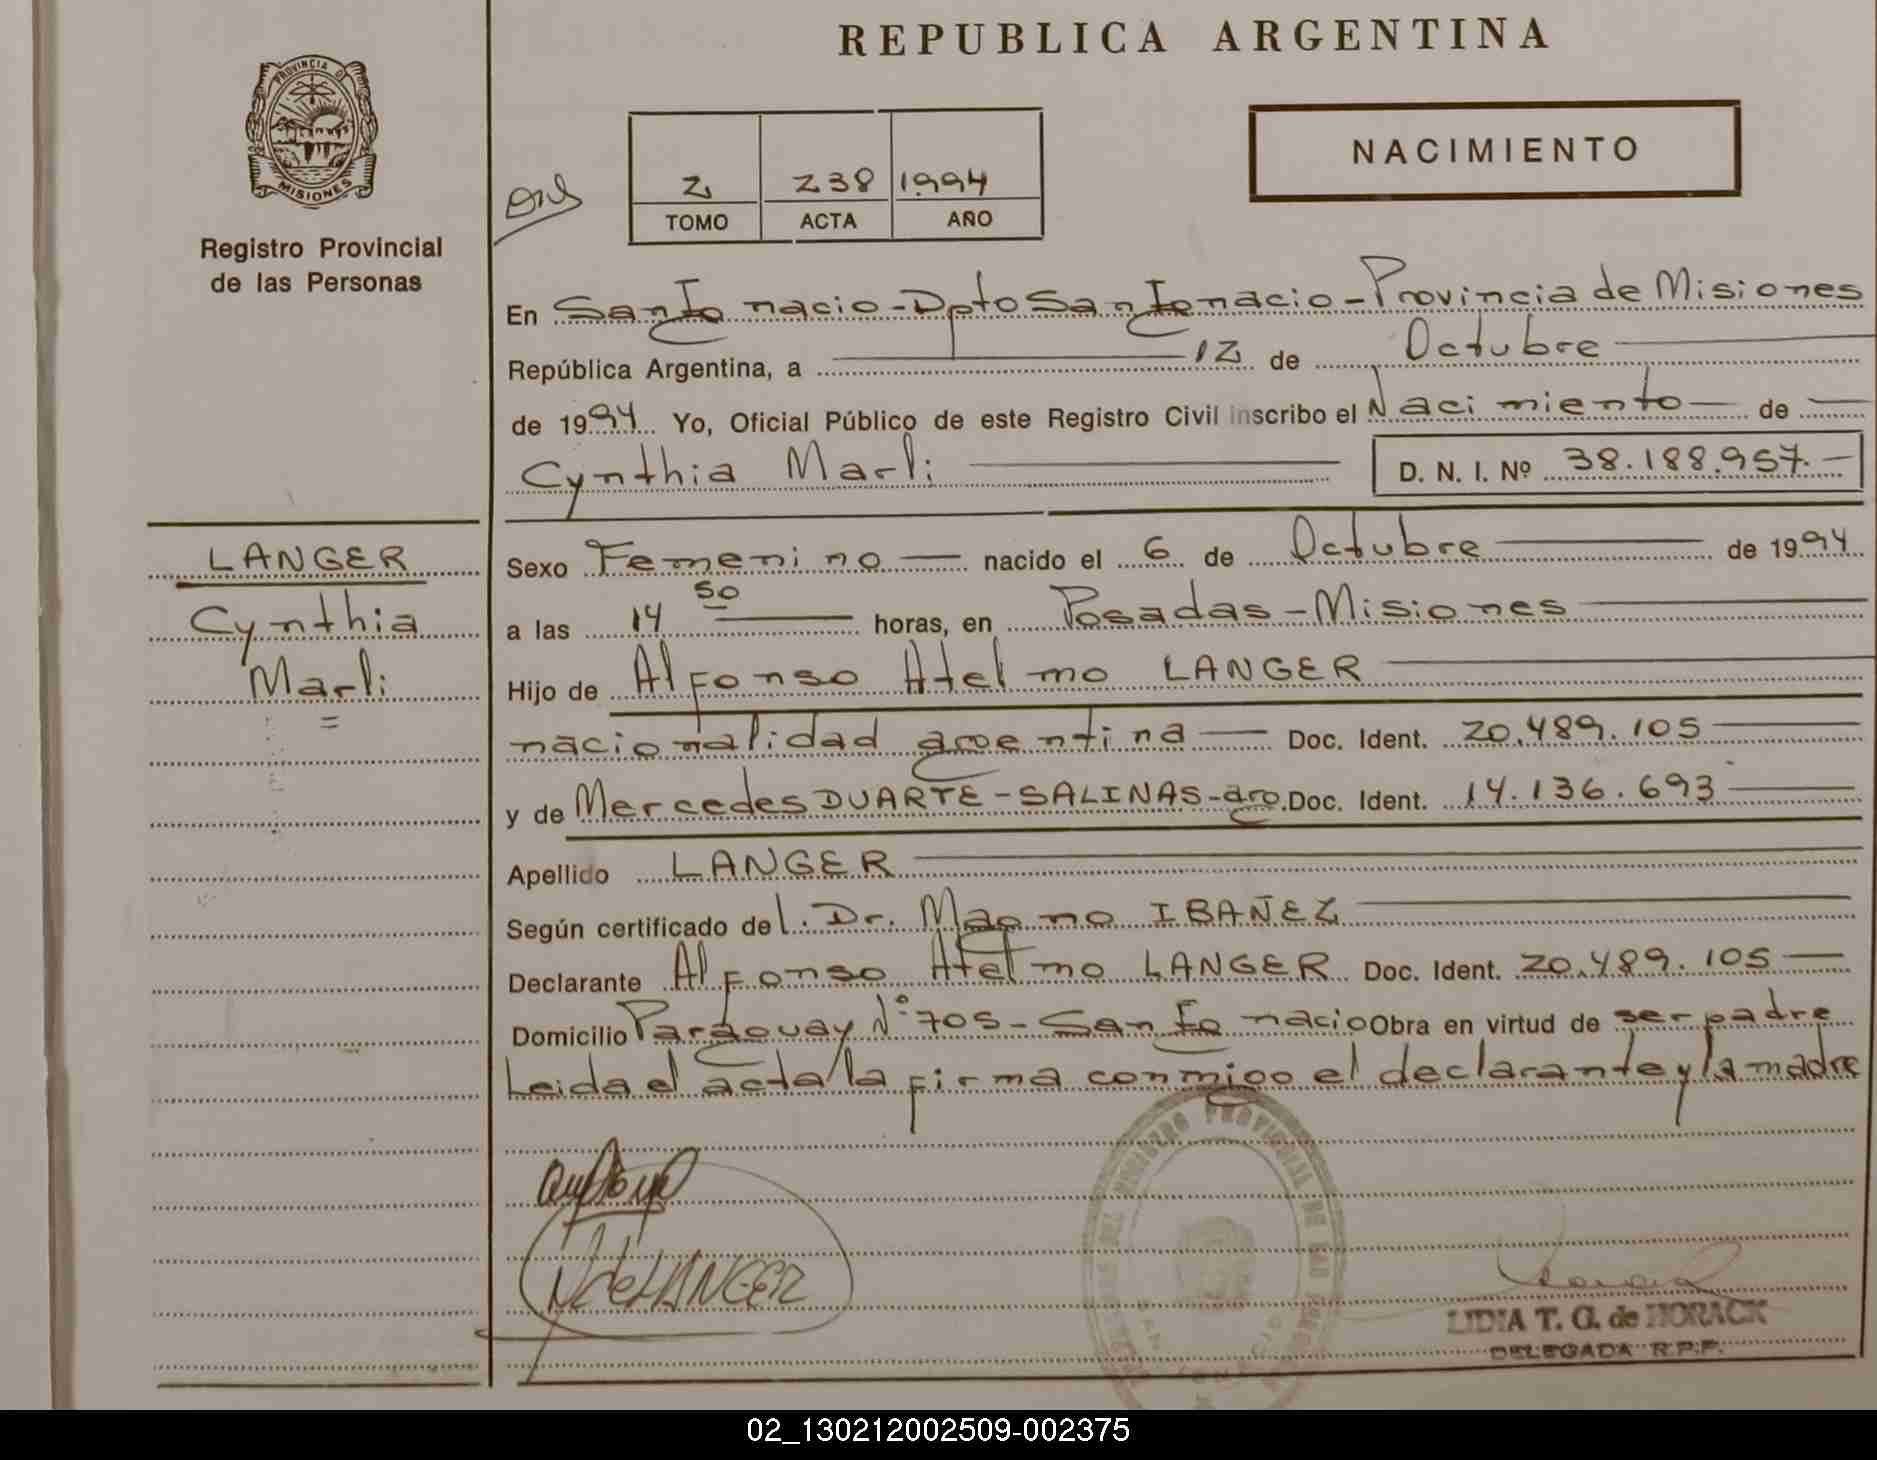 REPUBLICA ARGENTINA
PROVINCIA DE
MISIONES
Registro Provincial
de las Personas
2 238 1994
TOMO ACTA AÑO
NACIMIENTO
En San Ignacio - Dpto San Ignacio - Provincia de Misiones
República Argentina, a 12 de Octubre
de 1994 Yo, Oficial Público de este Registro Civil inscribo el Nacimiento de
Cynthia Marli D. N. I. Nº 38.188.957.
LANGER
Cynthia
Marli
Sexo Femenino nacido el 6 de Octubre de 1994
a las 14 50 horas, en Posadas - Misiones
Hijo de Alfonso Atelmo LANGER
nacionalidad argentina Doc. Ident. 20.489.105
y de Mercedes DUARTE - SALINAS - arg. Doc. Ident. 14.136.693
Apellido LANGER
Según certificado del. Dr. Magno IBAÑEZ
Declarante Alfonso Atelmo LANGER Doc. Ident. 20.489.105
Domicilio Paraguay N° 705 - San Ignacio Obra en virtud de ser padre
Leida el acta la firma conmigo el declarante y la madre
de LANGER
LIDIA T. G. de HORACK
DELEGADA R.P.P.
02_130212002509-002375